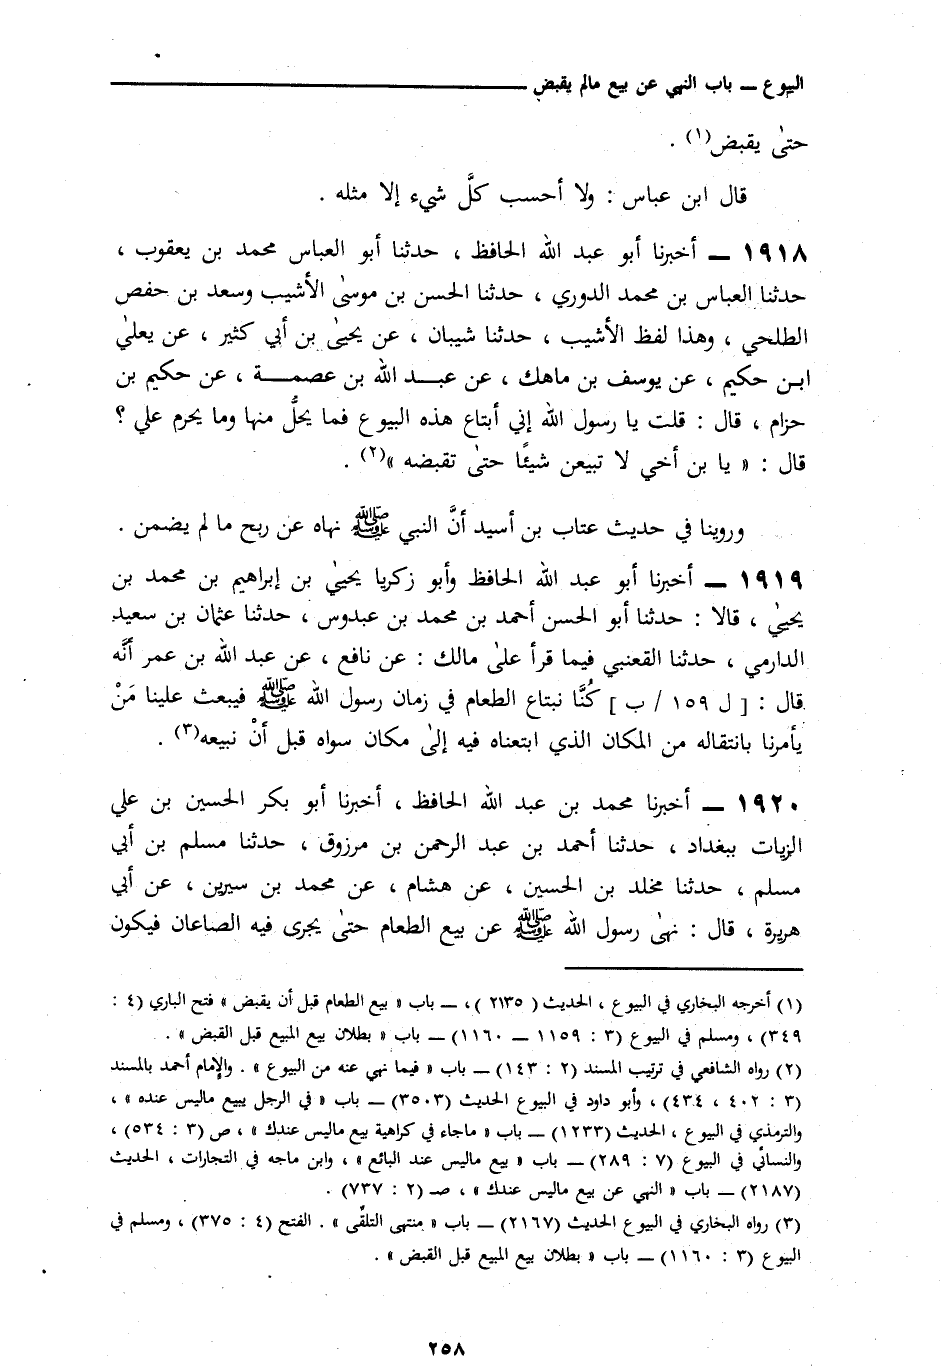 البيوع ــ باب النهي عن بيع مالم يقبض
حتىٰ يقبض(١) .
قال ابن عباس : ولا أحسب كلَّ شيء إلا مثله .
١٩١٨ ــ أخبرنا أبو عبد الله الحافظ ، حدثنا أبو العباس محمد بن يعقوب ،
حدثنا العباس بن محمد الدوري ، حدثنا الحسن بن موسىٰ الأشيب وسعد بن حفص
الطلحي ، وهذا لفظ الأشيب ، حدثنا شيبان ، عن يحيىٰ بن أبي كثير ، عن يعلىٰ
ابن حكيم ، عن يوسف بن ماهك ، عن عبد الله بن عصمة ، عن حكيم بن
حزام ، قال : قلت يا رسول الله إني أبتاع هذه البيوع فما يحلُّ منها وما يحرم علي ؟
قال : « يا بن أخي لا تبيعن شيئًا حتىٰ تقبضه »(٢) .
وروينا في حديث عتاب بن أسيد أنَّ النبي ﷺ نهاه عن ربح ما لم يضمن .
١٩١٩ ــ أخبرنا أبو عبد الله الحافظ وأبو زكريا يحيىٰ بن إبراهيم بن محمد بن
يحيىٰ ، قالا : حدثنا أبو الحسن أحمد بن محمد بن عبدوس ، حدثنا عثمان بن سعيد
الدارمي ، حدثنا القعنبي فيما قرأ علىٰ مالك : عن نافع ، عن عبد الله بن عمر أنَّه
قال : [ ل ١٥٩ / ب ] كُنَّا نبتاع الطعام في زمان رسول الله ﷺ فيبعث علينا مَنْ
يأمرنا بانتقاله من المكان الذي ابتعناه فيه إلىٰ مكان سواه قبل أنْ نبيعه(٣) .
١٩٢٠ ــ أخبرنا محمد بن عبد الله الحافظ ، أخبرنا أبو بكر الحسين بن علي
الزيات ببغداد ، حدثنا أحمد بن عبد الرحمن بن مرزوق ، حدثنا مسلم بن أبي
مسلم ، حدثنا مخلد بن الحسين ، عن هشام ، عن محمد بن سيرين ، عن أبي
هريرة ، قال : نهىٰ رسول الله ﷺ عن بيع الطعام حتىٰ يجرى فيه الصاعان فيكون
(١) أخرجه البخاري في البيوع ، الحديث ( ٢١٣٥ )، ــ باب « بيع الطعام قبل أن يقبض » فتح الباري (٤ :
٣٤٩) ، ومسلم في البيوع (٣ : ١١٥٩ ــ ١١٦٠) ــ باب « بطلان بيع المبيع قبل القبض » .
(٢) رواه الشافعي في ترتيب المسند (٢ : ١٤٣) ــ باب « فيما نهي عنه من البيوع » . والإمام أحمد بالمسند
(٣ : ٤٠٢ ، ٤٣٤) ، وأبو داود في البيوع الحديث (٣٥٠٣) ــ باب « في الرجل يبيع ماليس عنده » ،
والترمذي في البيوع ، الحديث (١٢٣٣) ــ باب « ماجاء في كراهية بيع ماليس عندك » ، ص (٣ : ٥٣٤) ،
والنسائي في البيوع (٧ : ٢٨٩) ــ باب « بيع ماليس عند البائع » ، وابن ماجه في التجارات ، الحديث
(٢١٨٧) ــ باب « النهي عن بيع ماليس عندك » ، صـ (٢ : ٧٣٧) .
(٣) رواه البخاري في البيوع الحديث (٢١٦٧) ــ باب « منتهى التلقّى » . الفتح (٤ : ٣٧٥) ، ومسلم في
البيوع (٣ : ١١٦٠) ــ باب « بطلان بيع المبيع قبل القبض » .
٢٥٨